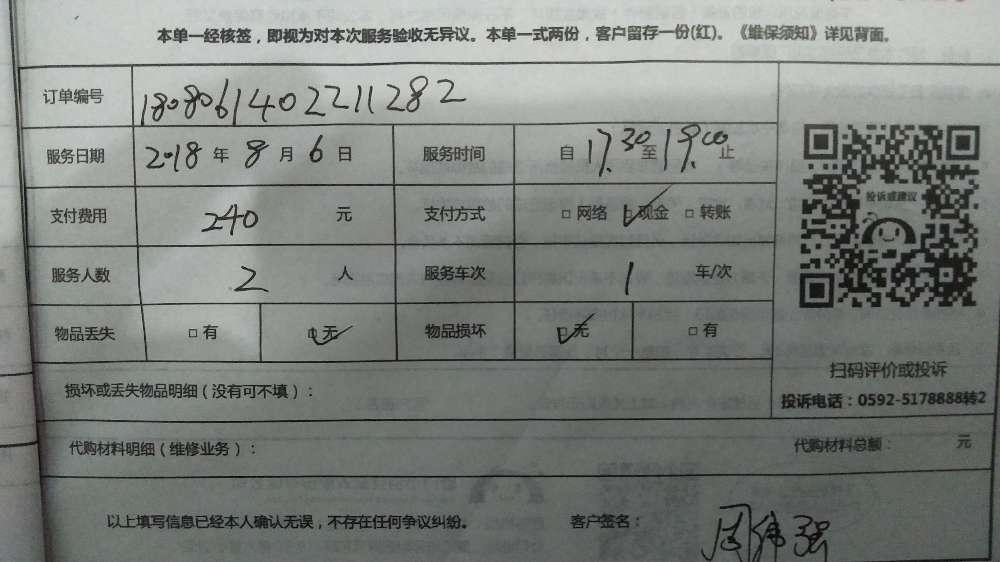 本单一经核签，即视为对本次服务验收无异议。本单一式两份，客户留存一份(红)。《维保须知》详见背面。
订单编号 180806140221282
服务日期 2018 年 8 月 6 日 服务时间 自 17.30 至 19.00 止
支付费用 240 元 支付方式 □ 网络 □ 现金 □ 转账
投诉或建议
服务人数 2 人 服务车次 1 车/次
物品丢失 □ 有 □ 无 物品损坏 □ 无 □ 有
扫码评价或投诉
损坏或丢失物品明细（没有可不填）：
投诉电话：0592-5178888转2
代购材料明细（维修业务）： 代购材料总额： 元
以上填写信息已经本人确认无误，不存在任何争议纠纷。 客户签名： 周伟强